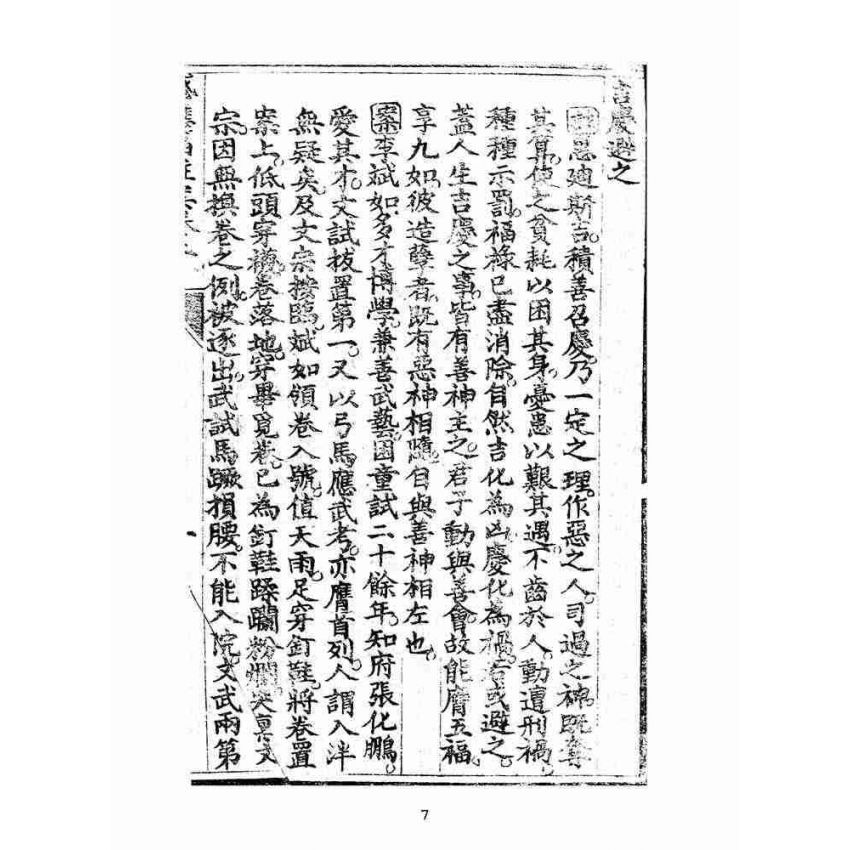 吉慶避之
惠廸斯吉。積善召慶。乃一定之理。作惡之人。司過之神。既奪
其算。使之貧耗以困其身。憂患以艱其遇。不齒於人。動遭刑禍。
種種示罰。福祿已盡消除。自然吉化為凶。慶化為禍。若或避之。
蓋人生吉慶之事。皆有善神主之。君子動與善會。故能膺五福。
享九如。彼造孽者。既有惡神相隨。自與善神相左也。
案李斌如。多才博學。兼善武藝。困童試二十餘年。知府張化鵬。
愛其才。文試拔置第一。又以弓馬應武考。亦膺首列。人謂入泮
無疑矣。及文宗按臨。斌如領卷入號。值天雨。足穿釘鞋。將卷置
案上。低頭穿襪。卷落地。穿畢覓卷。已為釘鞋蹂躪粉爛。哭稟文
宗。因無換卷之例。被逐出。武試馬蹶損腰。不能入院。文武兩第
7